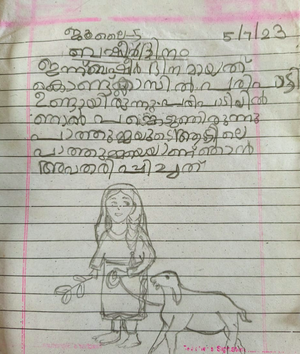 ജൂലൈ-5 5/7/23
ബഷീർദിനം
ഇന്ന് ബഷീർ ദിനമായത്
കൊണ്ട് ക്ലാസിൽ പരിപാടി
ഉണ്ടായിരുന്നു. പരിപാടിയിൽ
ഞാൻ പങ്കെടുത്തിരുന്നു
പാത്തുമ്മയുടെ ആട്ടിലെ
പാത്തുമ്മയെയാണ് ഞാൻ
അവതരിപ്പിച്ചത്